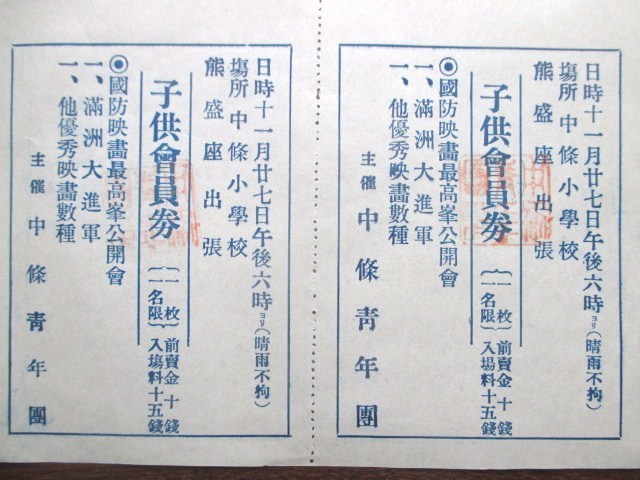 日時十一月廿七日午後六時ヨリ(晴雨不拘)
塲所中條小學校
熊盛座出張
子供會員券(一枚一名限)前賣金十錢 入塲料十五錢
◉國防映畫最高峯公開會
一、滿洲大進軍
一、他優秀映畫數種
主催中條靑年團
日時十一月廿七日午後六時ヨリ(晴雨不拘)
塲所中條小學校
熊盛座出張
子供會員券(一枚一名限)前賣金十錢 入塲料十五錢
◉國防映畫最高峯公開會
一、滿洲大進軍
一、他優秀映畫數種
主催中條靑年團